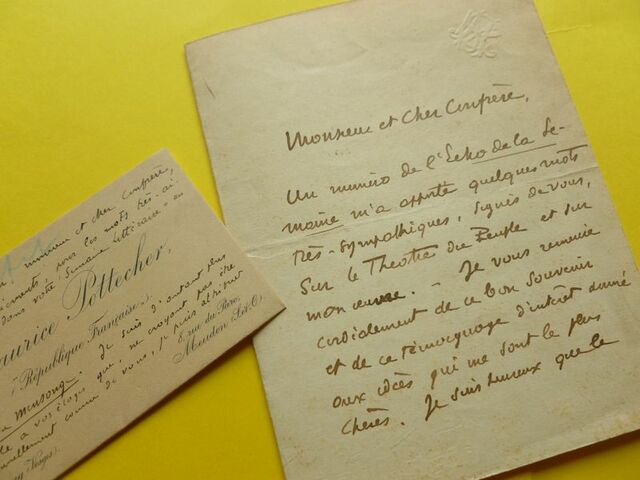 Monsieur et Cher Confrère,
Un numéro de l'Echo de la Se-
maine m'a apporté quelques mots
très-sympathiques, signés de vous,
sur le Théâtre du Peuple et sur
mon œuvre. - Je vous remercie
cordialement de ce bon souvenir
et de ce témoignage d'intérêt donné
aux idées qui me sont le plus
chères. Je suis heureux que le
monsieur et cher confrère,
pour les mots très-ai-
dans votre "Semaine littéraire" en
aurice Pottecher,
"République Française".
8, rue du Parc,
Meudon (S.-&-O.)
mensonge. Je suis d'autant plus
à vos éloges que, ne croyant pas être
comme de vous, je puis attribuer
(Vosges).